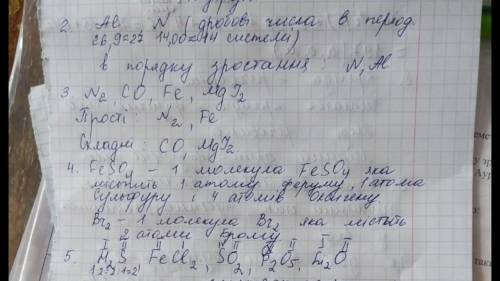 2. Al - N (дробові числа в період.
26,9=27 14,00=14 системі)
в порядку зростання: N, Al
3. N2, CO, Fe, MgI2
Прості: N2, Fe
Складні: CO, MgI2
4. FeSO4 - 1 молекула FeSO4 яка
містить 1 атому феруму, 1 атома
Сульфуру і 4 атомів Оксигену.
Br2 - 1 молекула Br2 яка містить
2 атоми Брому
I II II I II II I II
5. H2S, FeCl2, SO2, P2O5, O